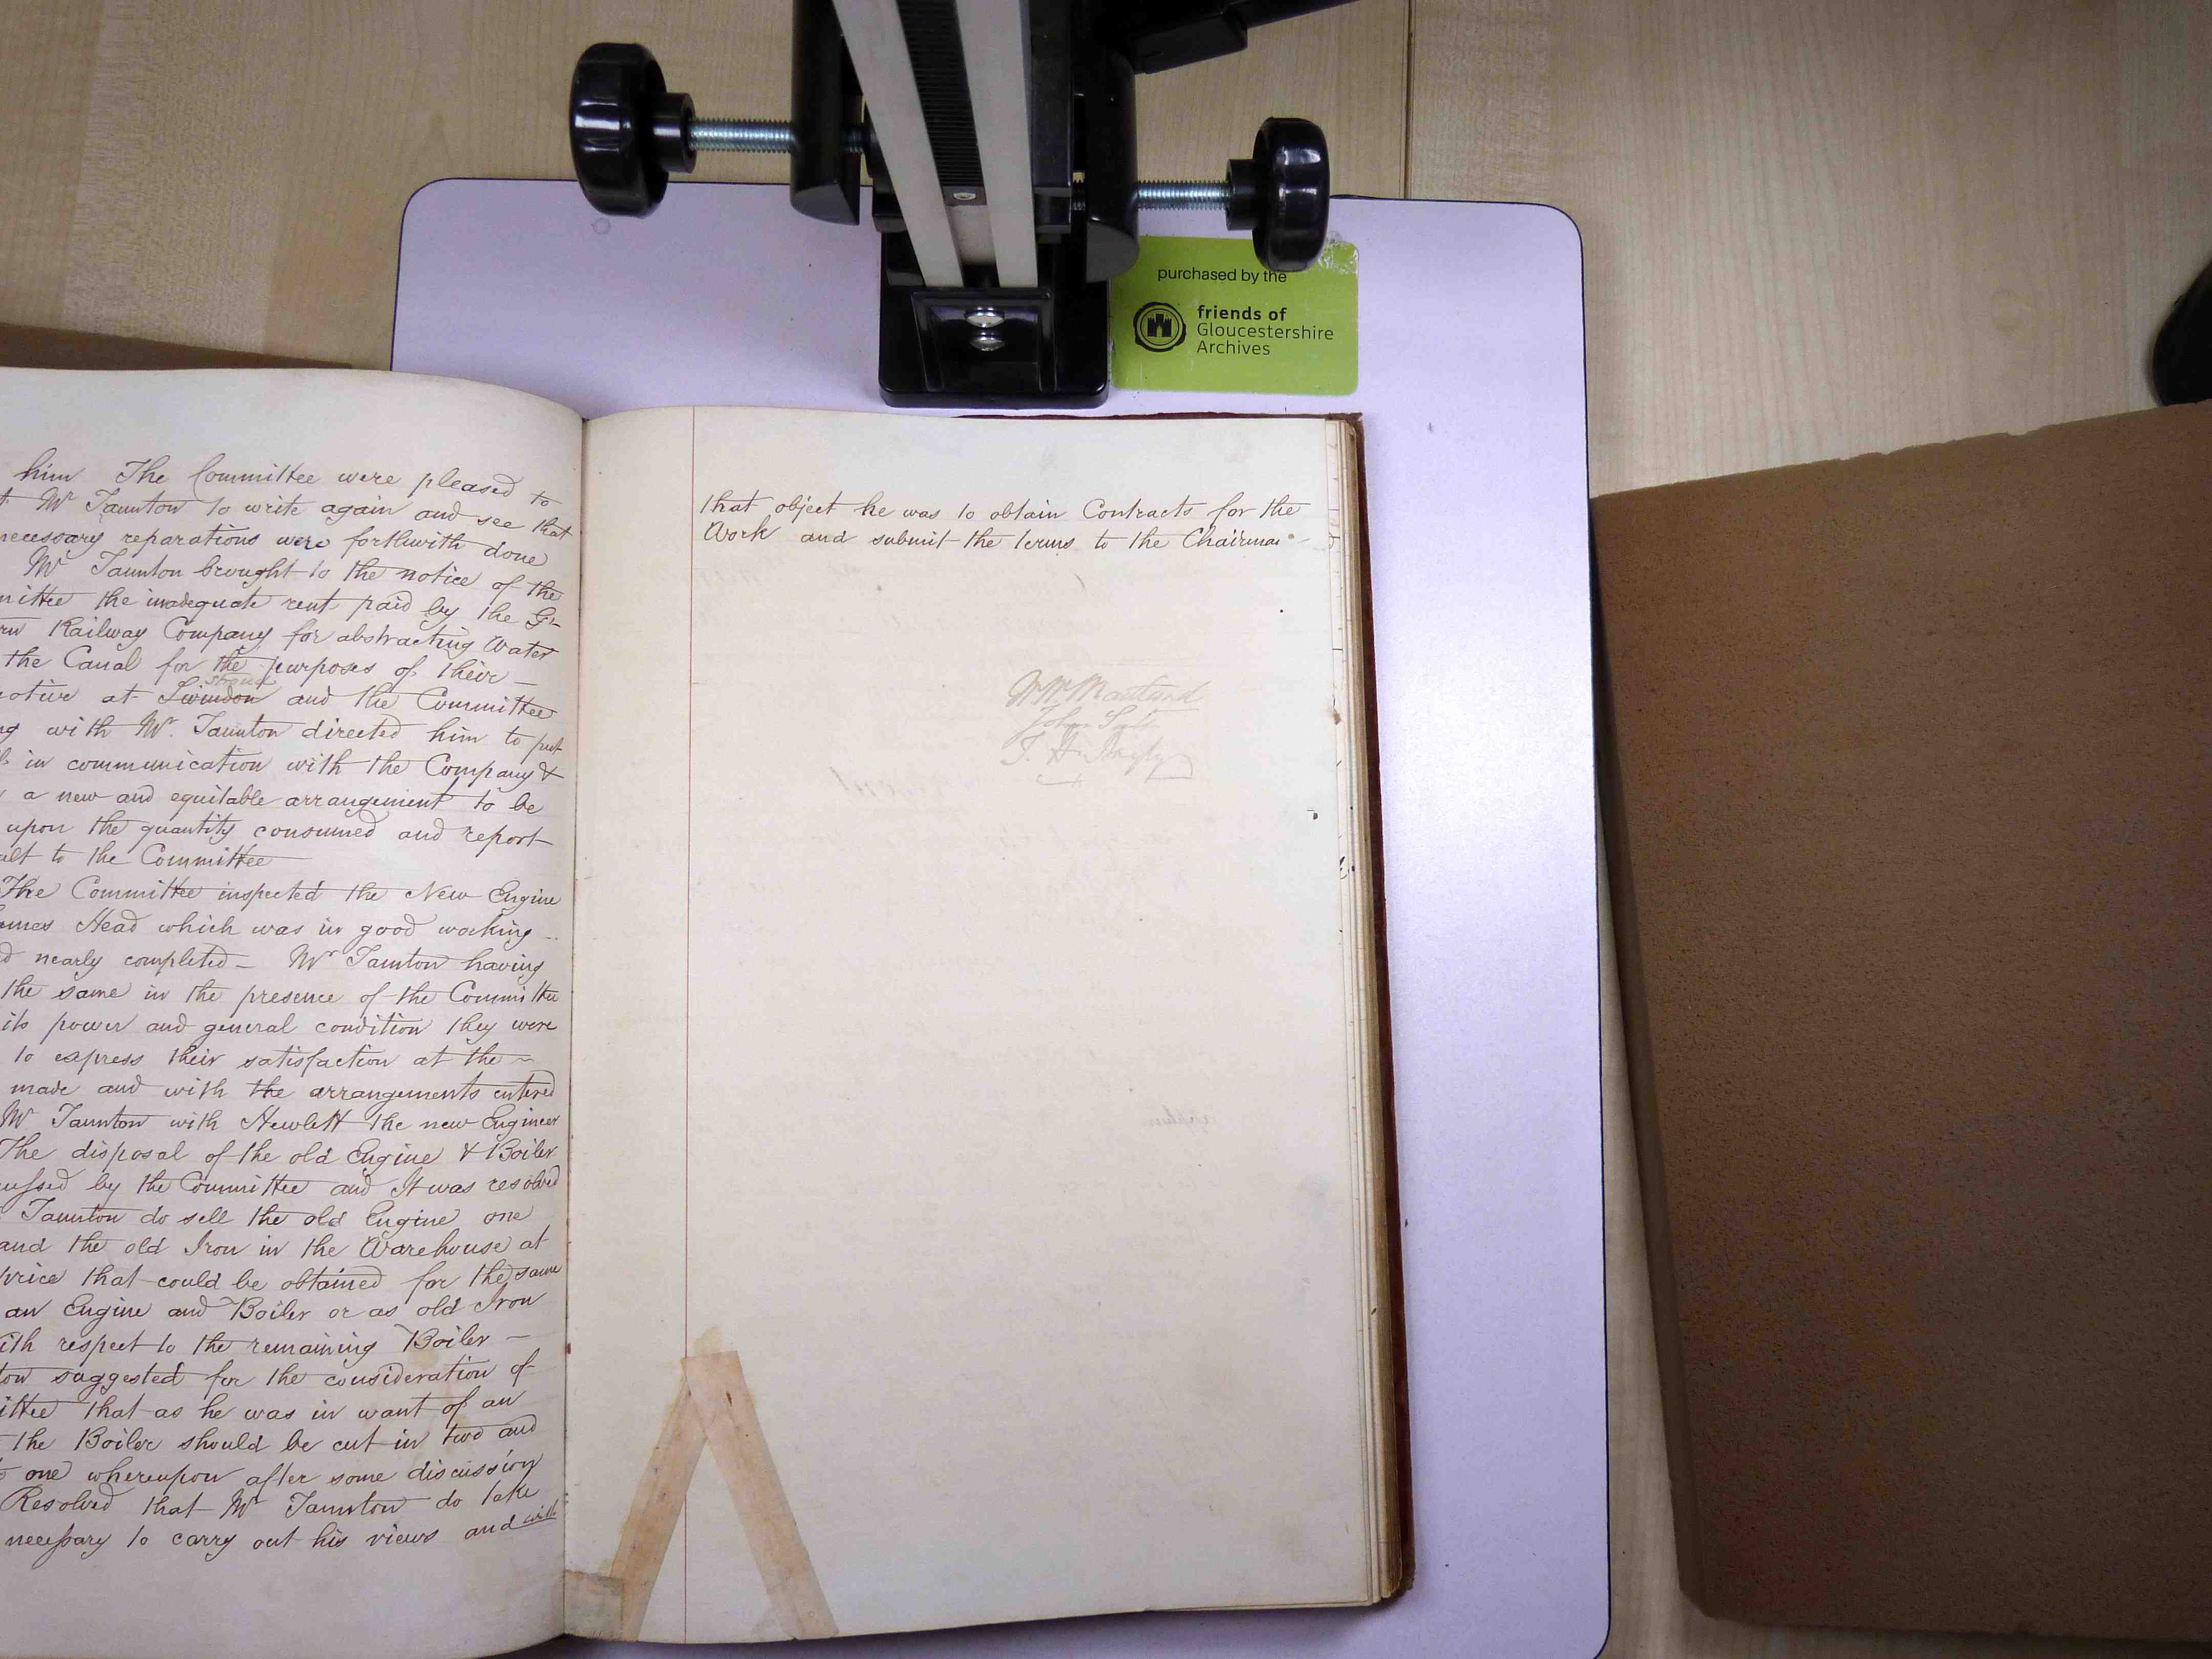 purchased by the
friends of
Gloucestershire
Archives
him The Committee were pleased to
Mr Taunton to write again and see that
necessary reparations were forthwith done
Mr Taunton brought to the notice of the
mittee the inadequate rent paid by the Gt
rn Railway Company for abstracting Water
the Canal for the purposes of their
Stroud
otive at Swindon and the Committee
ng with Mr. Taunton directed him to put
in communication with the Company &
a new and equitable arrangement to be
upon the quantity consumed and report
ult to the Committee
The Committee inspected the New Engine
ames Head which was in good working
d nearly completed Mr Taunton having
the same in the presence of the Committee
its power and general condition they were
to express their satisfaction at the
made and with the arrangements entered
Mr Taunton with Hewlett the new Engineer
The disposal of the old Engine & Boiler
cussed by the Committee and It was resolved
Taunton do sell the old Engine one
and the old Iron in the Warehouse at
price that could be obtained for the same
an Engine and Boiler or as old Iron
ith respect to the remaining Boiler
ton suggested for the consideration of
ittee that as he was in want of an
the Boiler should be cut in two and
one whereupon after some discussion
Resolved that Mr Taunton do take
necessary to carry out his views and with
that object he was to obtain Contracts for the
Work and submit the terms to the Chairman
John
T. H.